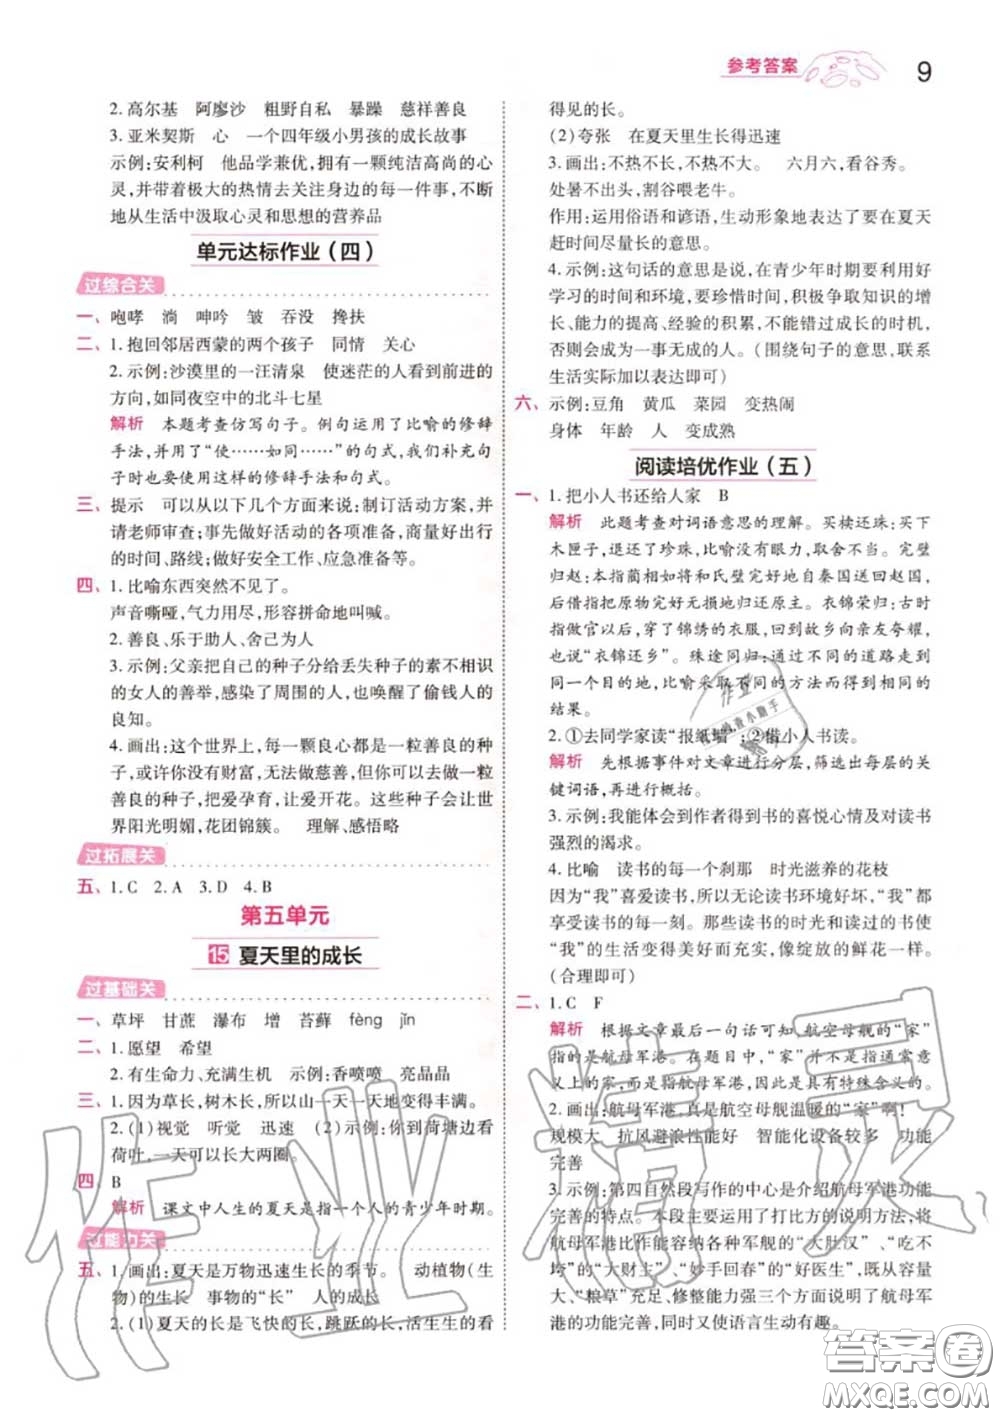 参考答案
9
2.高尔基 阿廖沙 粗野自私 暴躁 慈祥善良
3.亚米契斯 心 一个四年级小男孩的成长故事
示例:安利柯 他品学兼优,拥有一颗纯洁高尚的心
灵,并带着极大的热情去关注身边的每一件事,不断
地从生活中汲取心灵和思想的营养品
单元达标作业(四)
过综合关
一、咆哮 淌 呻吟 皱 吞没 搀扶
二、1.抱回邻居西蒙的两个孩子 同情 关心
2.示例:沙漠里的一汪清泉 使迷茫的人看到前进的
方向,如同夜空中的北斗七星
解析 本题考查仿写句子。例句运用了比喻的修辞
手法,并用了“使……如同……”的句式,我们补充句
子时也要使用这样的修辞手法和句式。
三、提示 可以从以下几个方面来说:制订活动方案,并
请老师审查;事先做好活动的各项准备,商量好出行
的时间、路线;做好安全工作、应急准备等。
四、1.比喻东西突然不见了。
声音嘶哑,气力用尽,形容拼命地叫喊。
2.善良、乐于助人、舍己为人
3.示例:父亲把自己的种子分给丢失种子的素不相识
的女人的善举,感染了周围的人,也唤醒了偷钱人的
良知。
4.画出:这个世界上,每一颗良心都是一粒善良的种
子,或许你没有财富,无法做慈善,但可以做一粒
善良的种子,把爱孕育,让爱开花。这些种子会让世
界阳光明媚,花团锦簇。 理解、感悟略
过拓展关
五、1.C 2.A 3.D 4.B
第五单元
15 夏天里的成长
过基础关
一、草坪 甘蔗 瀑布 增 苔藓 fèng jǐn
二、1.愿望 希望
2.有生命力、充满生机 示例:香喷喷 亮晶晶
三、1.因为草长,树木长,所以山一天一天地变得丰满。
2.(1)视觉 听觉 迅速 (2)示例:你到荷塘边看
荷叶,一天可以长大两圈。
四、B
解析 课文中人生的夏天是指一个人的青少年时期。
过能力关
五、1.画出:夏天是万物迅速生长的季节。 动植物(生
物)的生长 事物的“长” 人的成长
2.(1)夏天的长是飞快的长,跳跃的长,活生生的看
得见的长。
(2)夸张 在夏天里生长得迅速
3.画出:不热不长,不热不大。 六月六,看谷秀。
处暑不出头,割谷喂老牛。
作用:运用俗语和谚语,生动形象地表达了要在夏天
赶时间尽量长的意思。
4.示例:这句话的意思是说,在青少年时期要利用好
学习的时间和环境,要珍惜时间,积极争取知识的增
长、能力的提高、经验的积累,不能错过成长的时机,
否则会成为一事无成的人。(围绕句子的意思,联系
生活实际加以表达即可)
六、示例:豆角 黄瓜 菜园 变热闹
身体 年龄 人 变成熟
阅读培优作业(五)
一、1.把小人书还给人家 B
解析 此题考查对词语意思的理解。买椟还珠:买下
木匣子,退还了珍珠,比喻没有眼力,取舍不当。完璧
归赵:本指蔺相如将和氏璧完好地自秦国送回赵国,
后借指把原物完好无损地归还原主。衣锦荣归:古时
指做官以后,穿了锦绣的衣服,回到故乡向亲友夸耀,
也说“衣锦还乡”。殊途同归:通过不同的道路走到
同一个目的地,比喻采取不同的方法而得到相同的
结果。
2.①去同学家读“报纸墙”;②借小人书读。
解析 先根据事件对文章进行分层,筛选出每层的关
键词语,再进行概括。
3.示例:我能体会到作者得到书的喜悦心情及对读书
强烈的渴求。
4.比喻 读书的每一个刹那 时光滋养的花枝
因为“我”喜爱读书,所以无论读书环境好坏,“我”都
享受读书的每一刻。读书的时光和读过的书使
“我”的生活变得美好而充实,像绽放的鲜花一样。
(合理即可)
二、1.C F
解析 根据文章最后一句话可知,航空母舰的“家”
指的是航母军港。在题目中,“家”并不是普通意
义上的家,而是指航母军港,因此具有特殊含义的。
2.画出:航母军港,真是航空母舰温暖的“家”啊!
规模大 抗风避浪性能好 智能化设备较多 功能
完善
3.示例:第四自然段写作的中心是介绍航母军港功能
完善的特点。本段主要运用了打比方的说明方法,将
航母军港比作能容纳各种军舰的“大肚汉”、“吃不
垮”的“大财主”、“妙手回春”的“好医生”,既从容量
大、“粮草”充足、修整能力强三个方面说明了航母军
港的功能完善,同时又使语言生动有趣。
作业精灵
答案圈
MXQE.COM